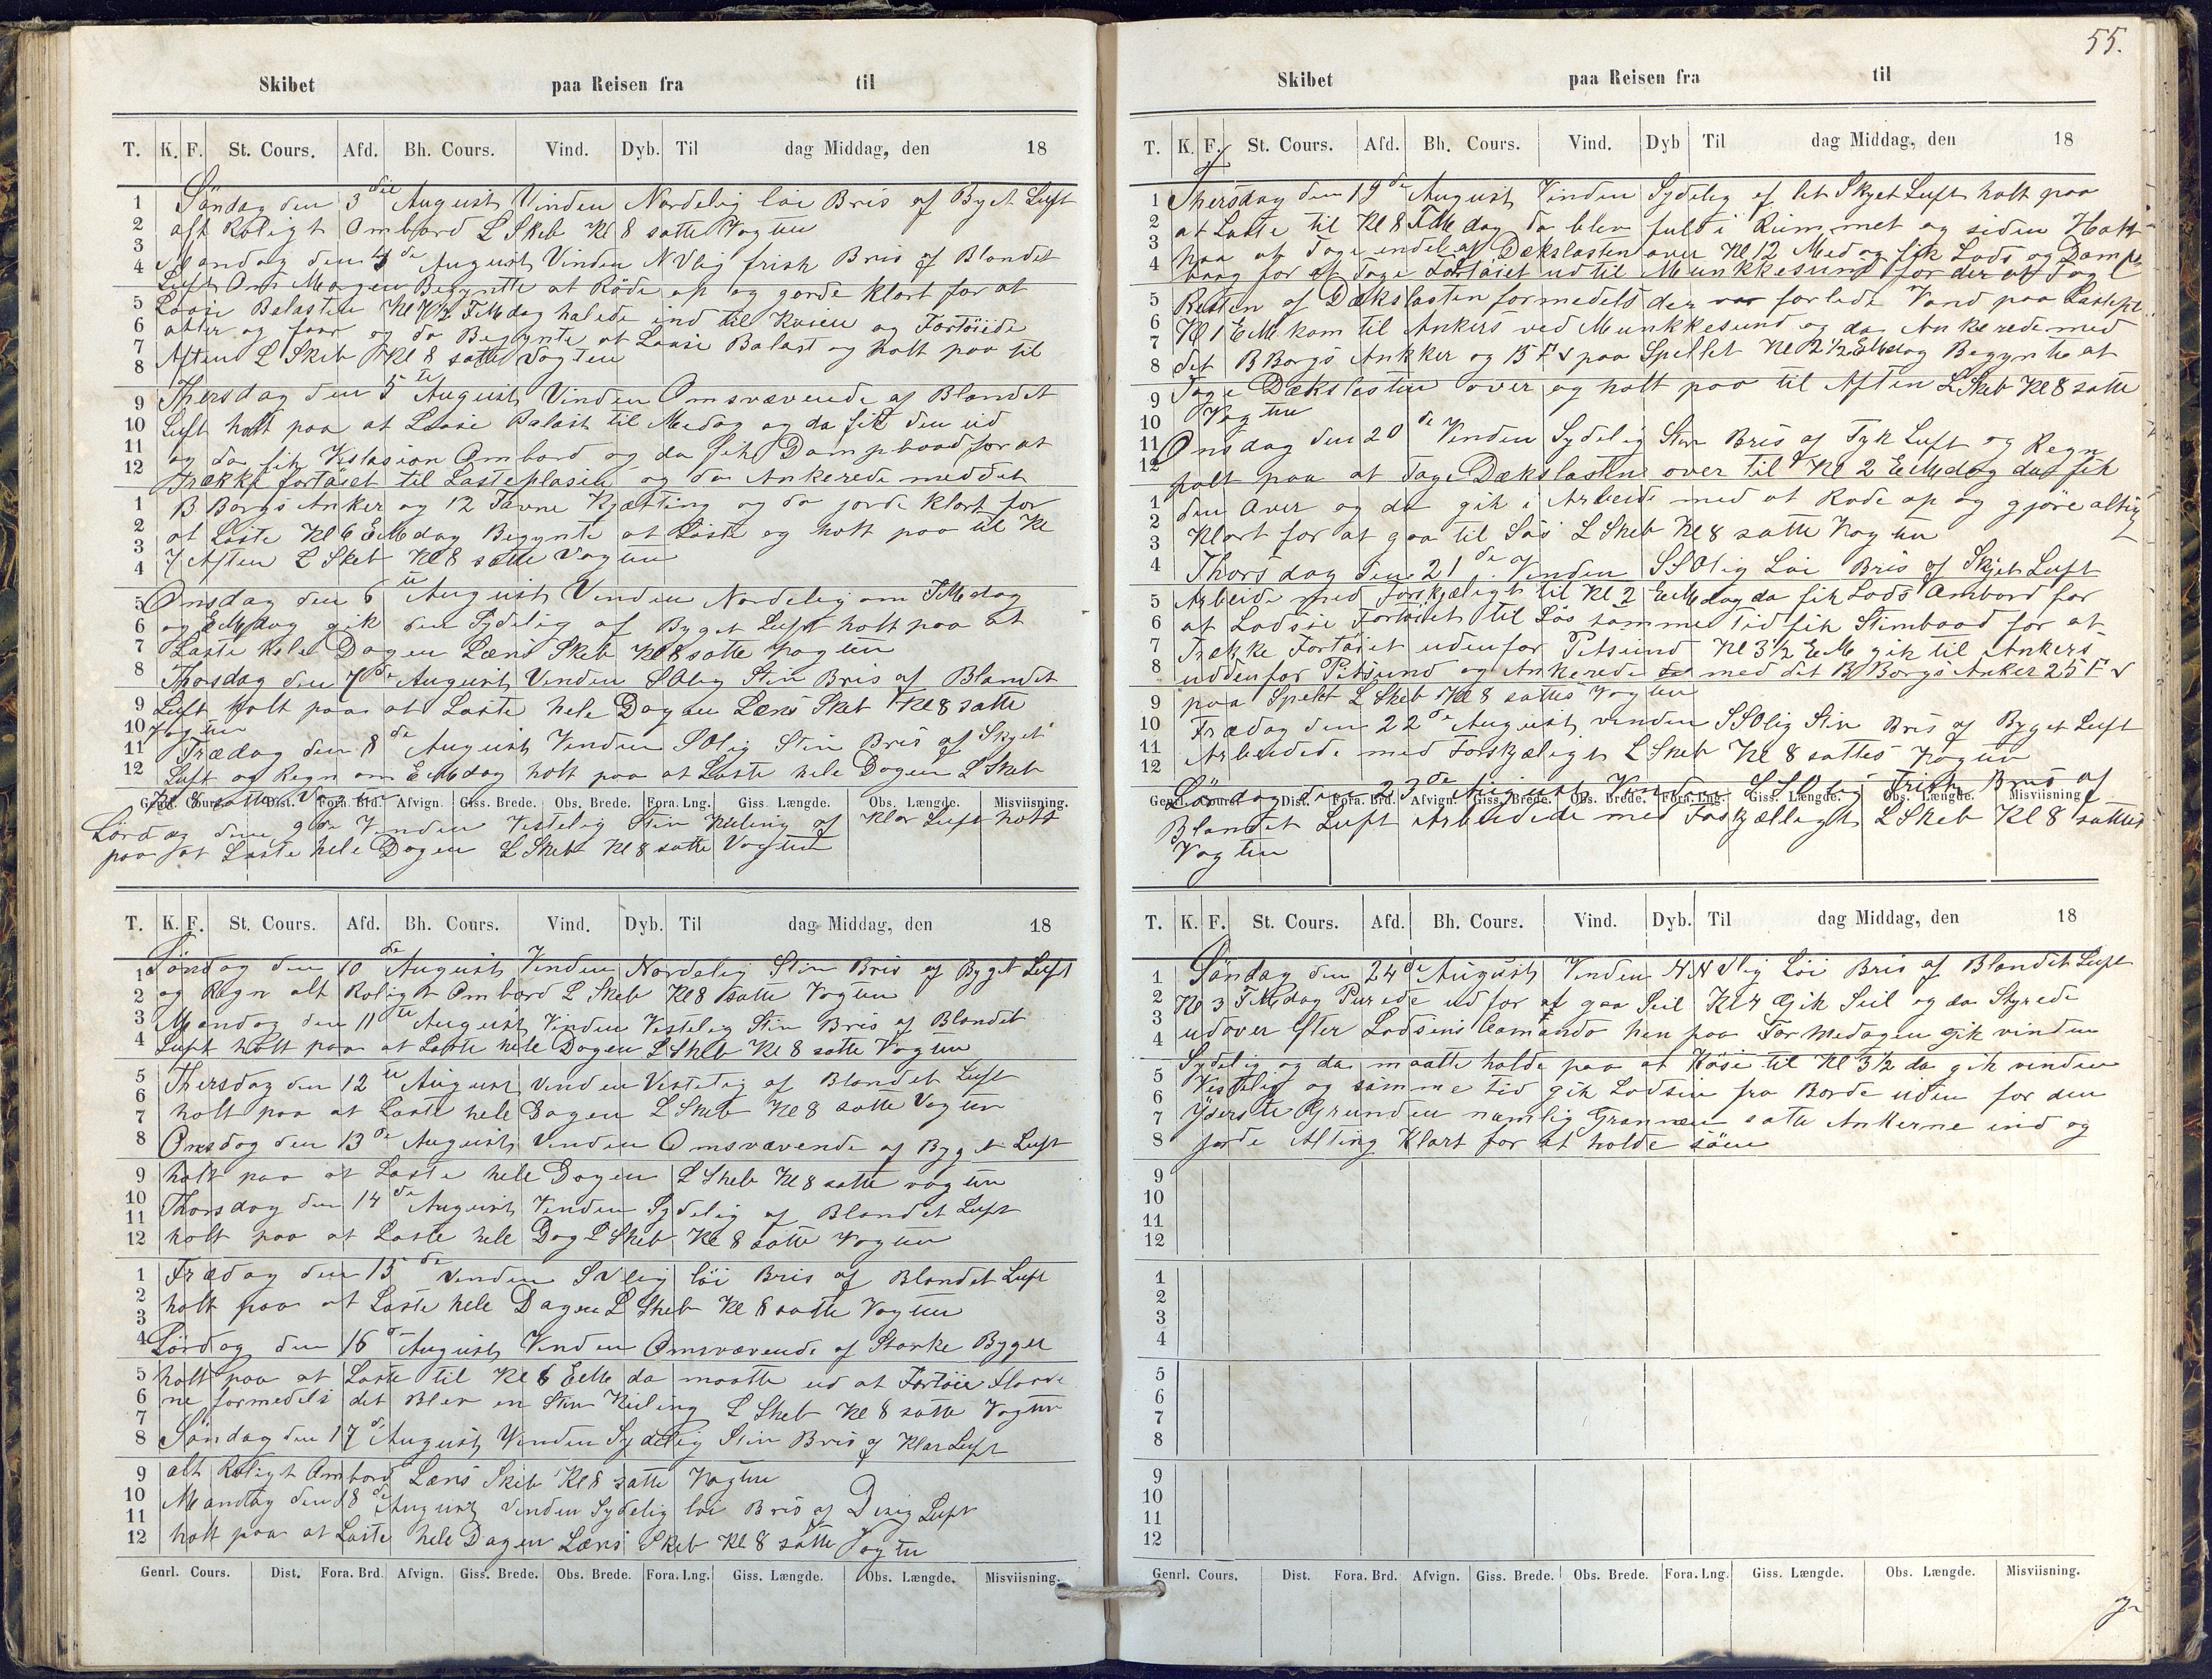 Skibet paa Reisen fra til
T. K. F. St. Cours. Afd. Bh. Cours. Vind. Dyb. Til dag Middag, den 18
Söndag den 3die August Vinden Nordelig löi Bris af Byet Luft
alt Roligt Ombord L Skeb Kl 8 satte Vagten
Mandag den 4de August Vinden NVlig frisk Bris af Blandet
Luft Om Morgen Begynte at Röde op og gorde klart for at
Laase Balasten Kl 7½ FMdag halede ind til Kaien og Fortöiede
atter og foor og da Begynte at Laase Balast og holt paa til
Aften L Skeb Kl 8 satte Vagten
Thersdag den 5te August Vinden Omsvævende af Blandet
Luft holt paa at Laase Balast til Medag og da fik den ud
og da fik Ombord og da fik Dampbaad for at
Trække fortöiet til Lasteplasen og da Ankerede med det
B Borgs Anker og 12 Favne Kjætting og da jorde klart for
at Laste Kl 6 EMdag Begynte at Laste og holt paa til Kl
7 Aften L Skeb Kl 8 satte Vagten
Onsdag den 6te August Vinden Nordelig om FMdag
og EMdag gik den Sydelig af Byget Luft holt paa at
Laste hele Dagen Læns Skeb Kl 8 satte Vagten
Thosdag den 7de August Vinden SOlig Stiv Bris af Blandet
Luft holt paa at Laste hele Dagen Læns Skeb Kl 8 satte
Vagten
Frædag den 8de August Vinden SOlig Stiv Bris af Skyet
Luft og Regn om EMdag holt paa at Laste hele Dagen L Skeb
Kl 8 satte Vagten
Genrl. Cours. Dist. Fora. Brd. Afvign. Giss. Brede. Obs. Brede. Fora. Lng. Giss. Længde. Obs. Længde. Misviisning.
Lördag den 9de Vinden Vestelig Stiv Kuling af Klar Luft holt
paa at Laste hele Dagen L Skeb Kl 8 satte Vagten
T. K. F. St. Cours. Afd. Bh. Cours. Vind. Dyb. Til dag Middag, den 18
Söndag den 10de August Vinden Nordelig Stiv Bris af Byget Luft
og Regn alt Roligt Ombord L Skeb Kl 8 satte Vagten
Mandag den 11te August Vinden Vestelig Stiv Bris af Blandet
Luft holt paa at Laste hele Dagen L Skeb Kl 8 satte Vagten
Thersdag den 12te August Vinden Vestelig af Blandet Luft
holt paa at Laste hele Dagen L Skeb Kl 8 satte Vagten
Onsdag den 13de August Vinden Omsvævende af Byget Luft
holt paa at Laste hele Dagen L Skeb Kl 8 satte vagten
Thorsdag den 14de August Vinden Sydelig af Blandet Luft
holt paa at Laste hele Dag L Skeb Kl 8 satte Vagten
Frædag den 15de Vinden SVlig löi Bris af Blandet Luft
holt paa at Laste hele Dagen L Skeb Kl 8 satte Vagten
Lördag den 16de August Vinden Omsvævende af Starke Byger
holt paa at Laste til Kl 6 EM da maatte ud at Fortöie Flaade
ne formedels det Blev en Stiv Kuling L Skeb Kl 8 satte Vagten
Söndag den 17de August Vinden Sydelig Stiv Bris af Klar Luft
alt Roligt Ombord Læns Skeb Kl 8 satte Vagten
Mandag den 18de August Vinden Sydelig löi Bris af Disig Luft
holt paa at Laste hele Dagen Læns Skeb Kl 8 satte Vagten
Genrl. Cours. Dist. Fora. Brd. Afvign. Giss. Brede. Obs. Brede. Fora. Lng. Giss. Længde. Obs. Længde. Misviisning.
55.
Skibet paa Reisen fra til
T. K. F. St. Cours. Afd. Bh. Cours. Vind. Dyb Til dag Middag, den 18
Thersdag den 19de August Vinden Sydelig af let Skyet Luft holt paa
at Laste til Kl 8 FMdag da blev fuld i Rummet og siden Holt
paa at Tage endel af Dækslasten over Kl 12 Medag fik Lods og Dampe
baag for at Tage Fortöiet ud til Munkkesund for der at Tage
Resten af Dækslasten formedels der var forlide Vand paa Lastepl
Kl 1 EM kom til Ankers ved Munkkesund og da Ankerede med
det B Borgs Ankker og 15 Fv paa Spellet Kl 2½ EMdag Begynte at
Tage Dækslasten over og holt paa til Aften L Skeb Kl 8 satte
Vagten
Onsdag den 20de Vinden Sydelig Stiv Bris af Tyk Luft og Regn
holt paa at Tage Dækslasten over til Kl 2 EMdag da fik
den Over og da gik i Arbeide med at Rode op og gjöre alting
Klart for at gaa til Söes L Skeb Kl 8 satte Vagten
Thorsdag den 21de Vinden SSOlig Löi Bris af Skyet Luft
Arbeide med Forskjæligt til Kl 2 EMdag da fik Lods Ombord for
at Lodsse Fortöiet til Söes samme tid fik Stimbaad for at
Trække Fortöiet udenfor Pitsund Kl 3½ EM gik til Ankers
uddenfor Pitsund og Ankerede med det B Borgs Anker 25 Fv
paa Spelet L Skeb Kl 8 sattes Vagten
Frædag den 22de August vinden SSOlig Stiv Bris af Byget Luft
Arbeidede med Forskjæligt L Skeb Kl 8 sattes Vagten
Lördag den 23de August Vinden SSOlig Frisk Bris af
Genrl. Cours. Dist. Fora. Brd. Afvign. Giss. Brede. Obs. Brede. Fora. Lng. Giss. Længde. Obs. Længde. Misviisning
Blandet Luft Arbeidede med Foskjælligt L Skeb Kl 8 sattes
Vagten
T. K. F. St. Cours. Afd. Bh. Cours. Vind. Dyb. Til dag Middag, den 18
Söndag den 24de August Vinden NNVlig Löi Bris af Blandet Luft
Kl 3 FMdag Purede ud for at gaa Seil Kl 4 Gik Seil og da Styrede
udover Efter Lodsens Comando hen paa For Medagen Gik vinden
Sydelig og da maatte holde paa at Köse til Kl 3½ da gik vinden
Vestelig og samme tid gik Lodsen fra Borde uden for den
Yderste Grunden namlig satte Ankerne ind og
jorde Alting Klart for at holde söen
Genrl. Cours. Dist. Fora. Brd. Afvign. Giss. Brede. Obs. Brede. Fora. Lng. Giss. Længde. Obs. Længde. Misviisning.